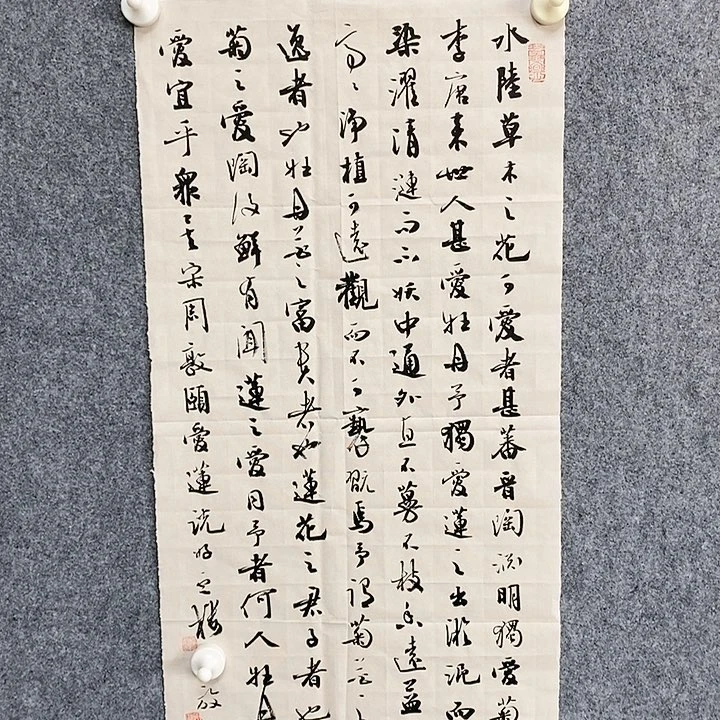 水陸草木之花可愛者甚蕃晉陶淵明獨愛菊
李唐来世人甚愛牡丹予獨愛蓮之出淤泥而
染濯清漣而不妖中通外直不蔓不枝香遠益
亭〻淨植可遠觀而不可褻翫焉予謂菊花之
逸者也牡丹花之富貴者也蓮花之君子者也
菊之愛陶後鮮有聞蓮之愛同予者何人牡丹
愛宜乎衆矣宋周敦頤愛蓮説